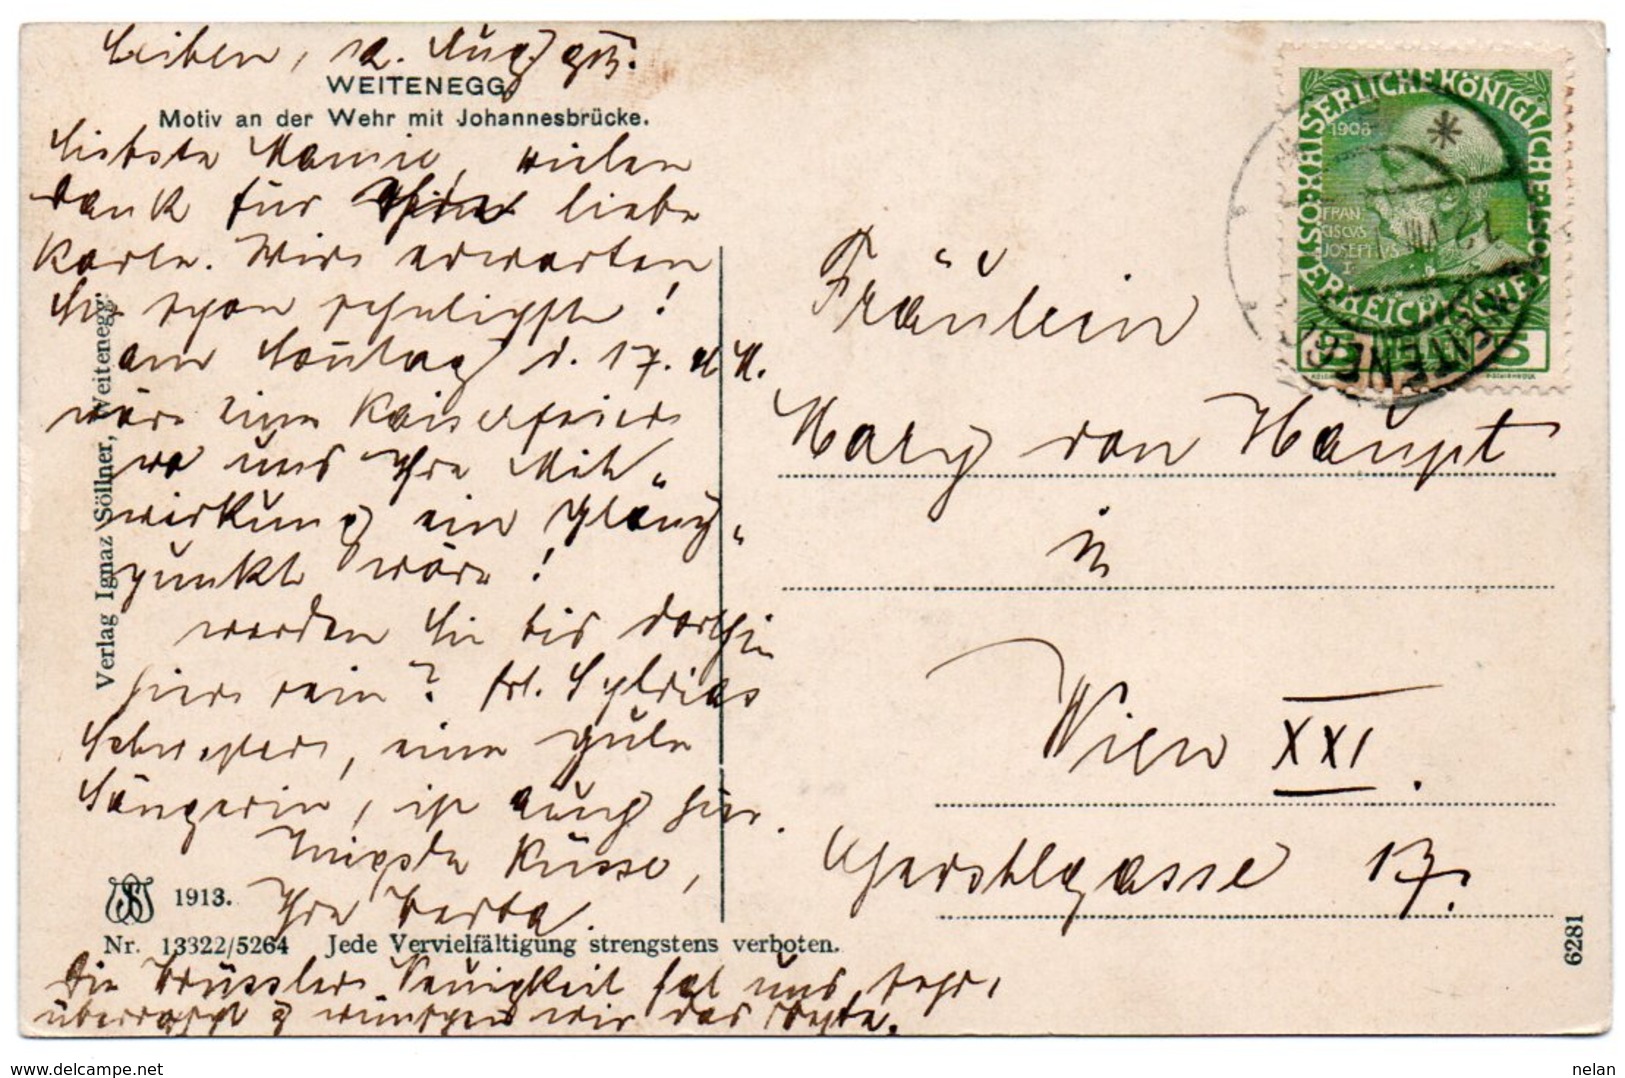 Leiben, 12. Aug 913.
WEITENEGG.
Motiv an der Wehr mit Johannesbrücke.
Liebste Mamie, vielen
Dank für Ihre liebe
Karte. Wir erwarten
Sie schon sehnlichst!
am Sonntag d. 17. d M.
wäre eine Kaiserfeier
wo uns Ihre Mit"
wirkung ein Glanz"
punkt wäre!
werden Sie bis dorthin
hier sein? Frl. Sylvias
Schwester, eine gute
Sängerin, ist auch hier.
Innigste Küsse,
Ihre Berta.
Die Brüssler Neuigkeit hat uns sehr
überrascht & wünschen wir das Beste.
Verlag Ignaz Söllner, Weitenegg.
1913.
Nr. 13322/5264 Jede Vervielfältigung strengstens verboten.
KAISERLICHE KÖNIGLICHE ÖSTERREICHISCHE POST
1908
FRAN
CISCVS
JOSEPHVS
I
5 5
WEITENEGG
12 VIII
Fräulein
Mary von Haupt
in
Wien XXI.
Gerstlgasse 13.
6281
delcampe.net
nelan